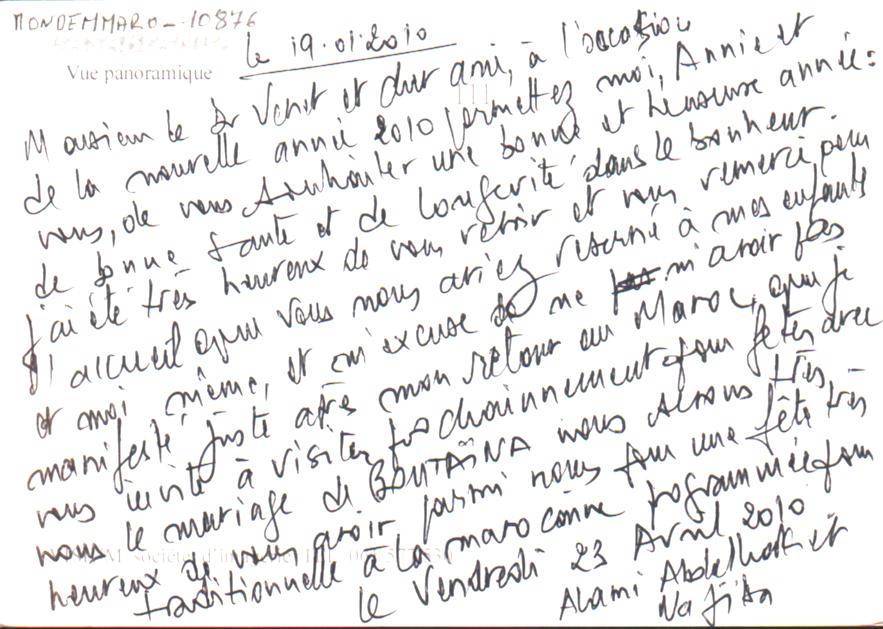 MONDEMMARO_.10876
Le 19.01.2010
Vue panoramique
Monsieur le Dr Venot et cher ami, à l'occasion
de la nouvelle année 2010 permettez moi, Annie et
vous, de vous souhaiter une bonne et heureuse année:
de bonne santé et de longévité dans le bonheur.
J'ai été très heureux de vous revoir et vous remercie pour
l'accueil que vous nous aviez reservé à mes enfants
et moi même, et m'excuse de ne m'avoir pas
manifesté juste après mon retour au Maroc, que je
vous invite à visiter prochainnement pour fêter avec
nous le mariage de BOUTAÏNA nous serons très
heureux de vous avoir parmi nous pour une fête très
traditionnelle à la marocaine programmée pour
le Vendredi 23 Avril 2010
Alami Abdelhak et
Najiba